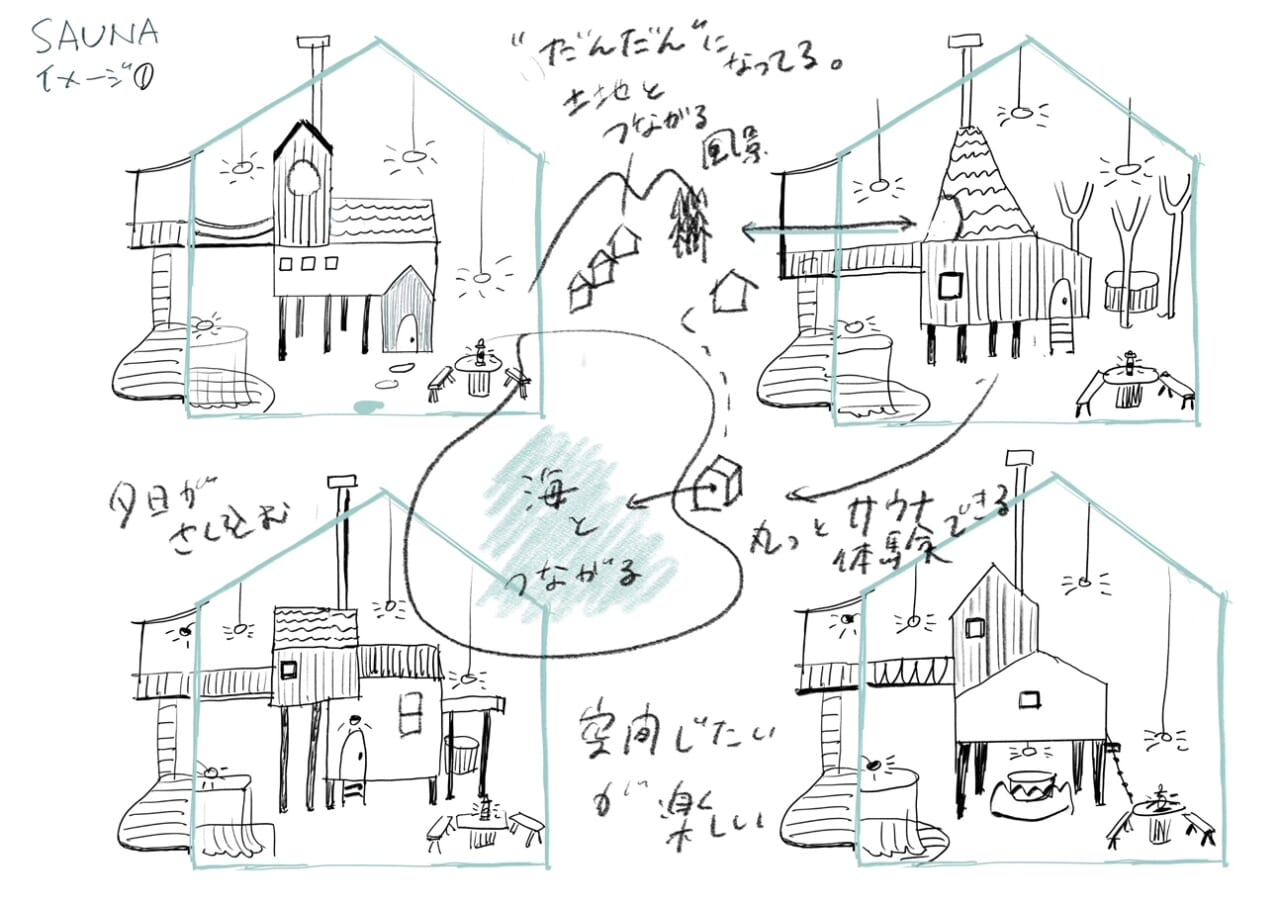 SAUNA
イメージ①
"だんだん"に
なってる。
土地と
つながる
風景
夕日が
さし込む
海
と
つながる
丸っと サウナ
体験できる
空間じたい
が 楽しい